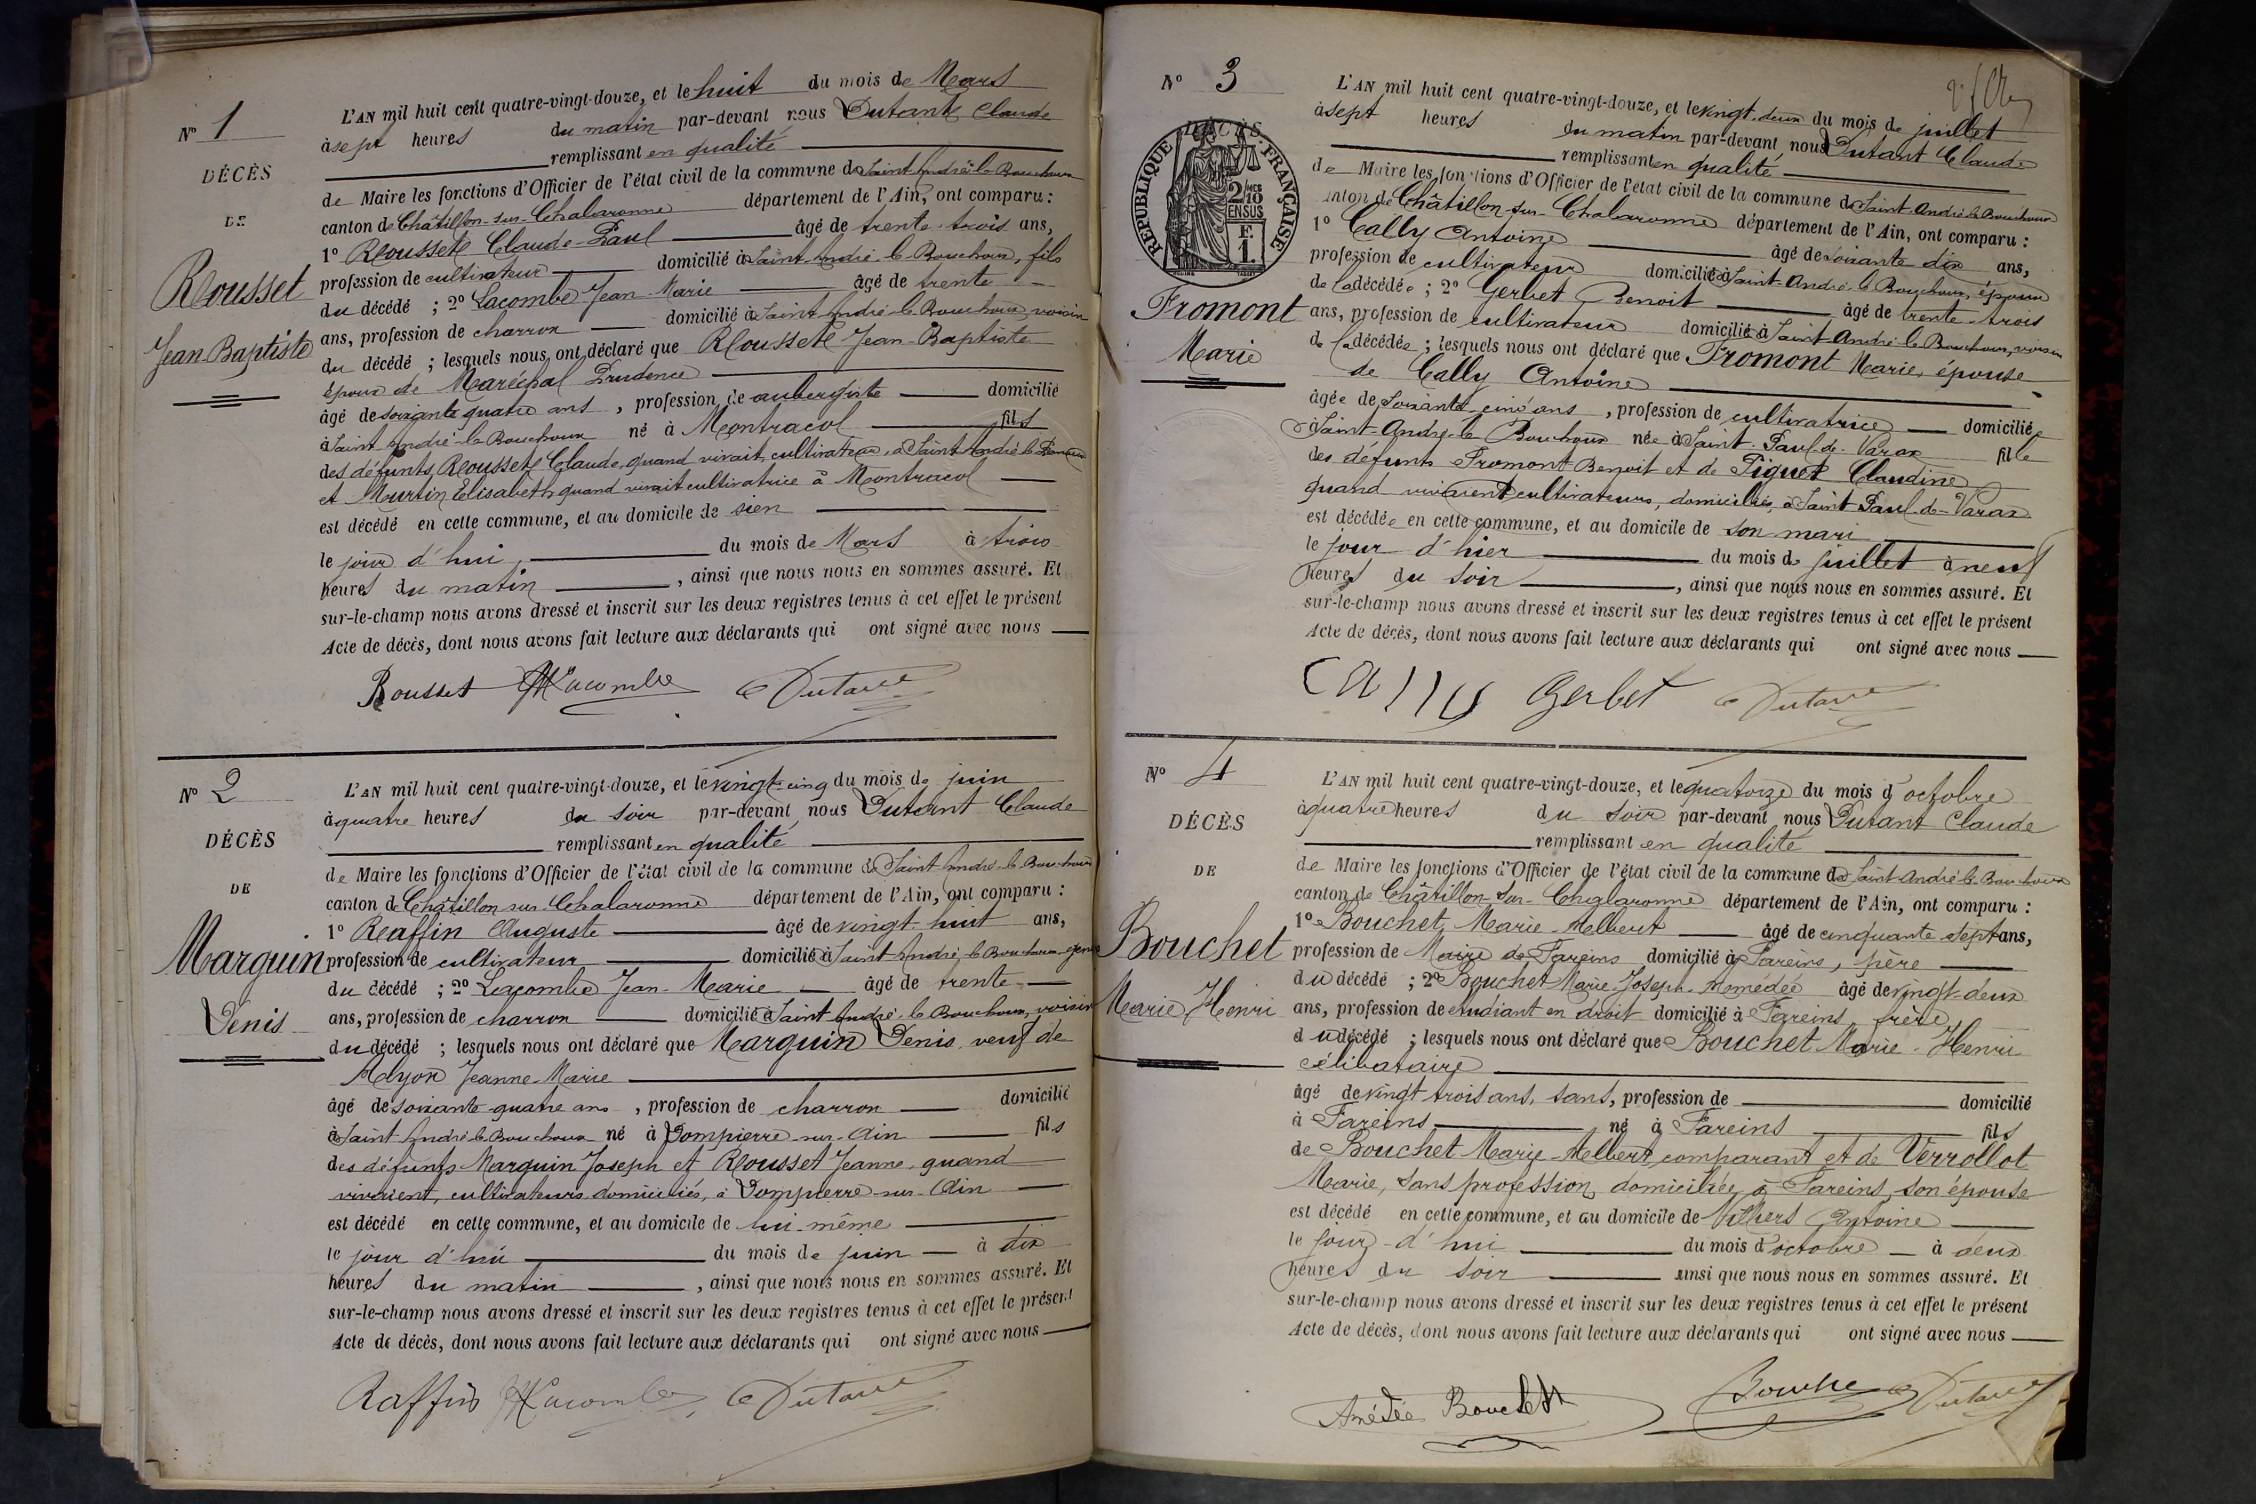 N° 1
DÉCÈS
DE
Rousset
Jean Baptiste
L'AN mil huit cent quatre-vingt-douze, et le huit du mois de Mars
à sept heures du matin par-devant nous Dutant Claude
remplissant en qualité
de Maire les fonctions d'Officier de l'état civil de la commune de Saint André le Bouchoux
canton de Châtillon-sur-Chalaronne département de l'Ain, ont comparu :
1° Rousset Claude-Paul âgé de trente-trois ans,
profession de cultivateur domicilié à Saint André-le-Bouchoux, fils
du décédé ; 2° Lacombe Jean-Marie âgé de trente
ans, profession de charron domicilié à Saint André-le-Bouchoux voisin
du décédé ; lesquels nous ont déclaré que Rousset Jean-Baptiste
époux de Maréchal Prudence
âgé de soixante quatre ans, profession de aubergiste domicilié
à Saint André-le-Bouchoux né à Montracol fils
des défunts Rousset Claude, quand vivait, cultivateur à Saint André le Bouchoux
et Murtin Elisabeth, quand vivait cultivatrice à Montracol
est décédé en cette commune, et au domicile de sien
le jour d'hui du mois de Mars à trois
heures du matin, ainsi que nous nous en sommes assuré. Et
sur-le-champ nous avons dressé et inscrit sur les deux registres tenus à cet effet le présent
Acte de décès, dont nous avons fait lecture aux déclarants qui ont signé avec nous
Rousset Lacombe Dutant
N° 2
DÉCÈS
DE
Marguin
Denis
L'AN mil huit cent quatre-vingt-douze, et le vingt-cinq du mois de juin
à quatre heures du soir par-devant nous Dutant Claude
remplissant en qualité
de Maire les fonctions d'Officier de l'état civil de la commune de Saint André-le-Bouchoux
canton de Châtillon sur Chalaronne département de l'Ain, ont comparu :
1° Raffin Auguste âgé de vingt-huit ans,
profession de cultivateur domicilié à Saint André-le-Bouchoux
du décédé ; 2° Lacombe Jean-Marie âgé de trente
ans, profession de charron domicilié à Saint André-le-Bouchoux, voisin
du décédé ; lesquels nous ont déclaré que Marguin Denis veuf de
Jeanne-Marie
âgé de soixante-quatre ans, profession de charron domicilié
à Saint André-le-Bouchoux né à Dompierre-sur-Ain fils
des défunts Marguin Joseph et Rousset Jeanne, quand
vivaient, cultivateurs domiciliés, à Dompierre-sur-Ain
est décédé en cette commune, et au domicile de lui-même
le jour d'hui du mois de juin à dix
heures du matin, ainsi que nous nous en sommes assuré. Et
sur-le-champ nous avons dressé et inscrit sur les deux registres tenus à cet effet le présent
Acte de décès, dont nous avons fait lecture aux déclarants qui ont signé avec nous
Raffin Lacombe Dutant
N° 3
RÉPUBLIQUE FRANÇAISE
2/10 EN SUS
F. 1.
Fromont
Marie
L'AN mil huit cent quatre-vingt-douze, et le vingt-deux du mois de juillet
à sept heures du matin par-devant nous Dutant Claude
remplissant en qualité
de Maire les fonctions d'Officier de l'état civil de la commune de Saint-André-le-Bouchoux
canton de Châtillon-sur-Chalaronne département de l'Ain, ont comparu :
1° Cally Antoine âgé de soixante dix ans,
profession de cultivateur domicilié à Saint-André-le-Bouchoux, époux
de la décédée ; 2° Gerbet Benoit âgé de trente-trois
ans, profession de cultivateur domicilié à Saint-André-le-Bouchoux, voisin
de la décédée ; lesquels nous ont déclaré que Fromont Marie, épouse
de Cally Antoine
âgée de soixante cinq ans, profession de cultivatrice domiciliée
à Saint-André-le-Bouchoux née à Saint-Paul-de-Varax fille
des défunts Fromont Benoit et de Piguet Claudine
quand vivaient cultivateurs, domiciliés, à Saint-Paul-de-Varax
est décédée en cette commune, et au domicile de son mari
le jour d'hier du mois de juillet à neuf
heures du soir, ainsi que nous nous en sommes assuré. Et
sur-le-champ nous avons dressé et inscrit sur les deux registres tenus à cet effet le présent
Acte de décès, dont nous avons fait lecture aux déclarants qui ont signé avec nous
Cally Gerbet Dutant
N° 4
DÉCÈS
DE
Bouchet
Marie Henri
L'AN mil huit cent quatre-vingt-douze, et le quatorze du mois d'octobre
à quatre heures du soir par-devant nous Dutant Claude
remplissant en qualité
de Maire les fonctions d'Officier de l'état civil de la commune de Saint-André-le-Bouchoux
canton de Châtillon-sur-Chalaronne département de l'Ain, ont comparu :
1° Bouchet Marie-Albert âgé de cinquante sept ans,
profession de Maire de Fareins domicilié à Fareins, père
du décédé ; 2° Bouchet Marie-Joseph-Amédée âgé de vingt-deux
ans, profession de étudiant en droit domicilié à Fareins, frère
du décédé ; lesquels nous ont déclaré que Bouchet Marie-Henri
célibataire
âgé de vingt trois ans, sans, profession de domicilié
à Fareins né à Fareins fils
de Bouchet Marie-Albert, comparant et de Verrollot
Marie, sans profession, domiciliée à Fareins, son épouse
est décédé en cette commune, et au domicile de Antoine
le jour-d'hui du mois d'octobre à deux
heures du soir ainsi que nous nous en sommes assuré. Et
sur-le-champ nous avons dressé et inscrit sur les deux registres tenus à cet effet le présent
Acte de décès, dont nous avons fait lecture aux déclarants qui ont signé avec nous
Amédée Bouchet Bouchet Dutant